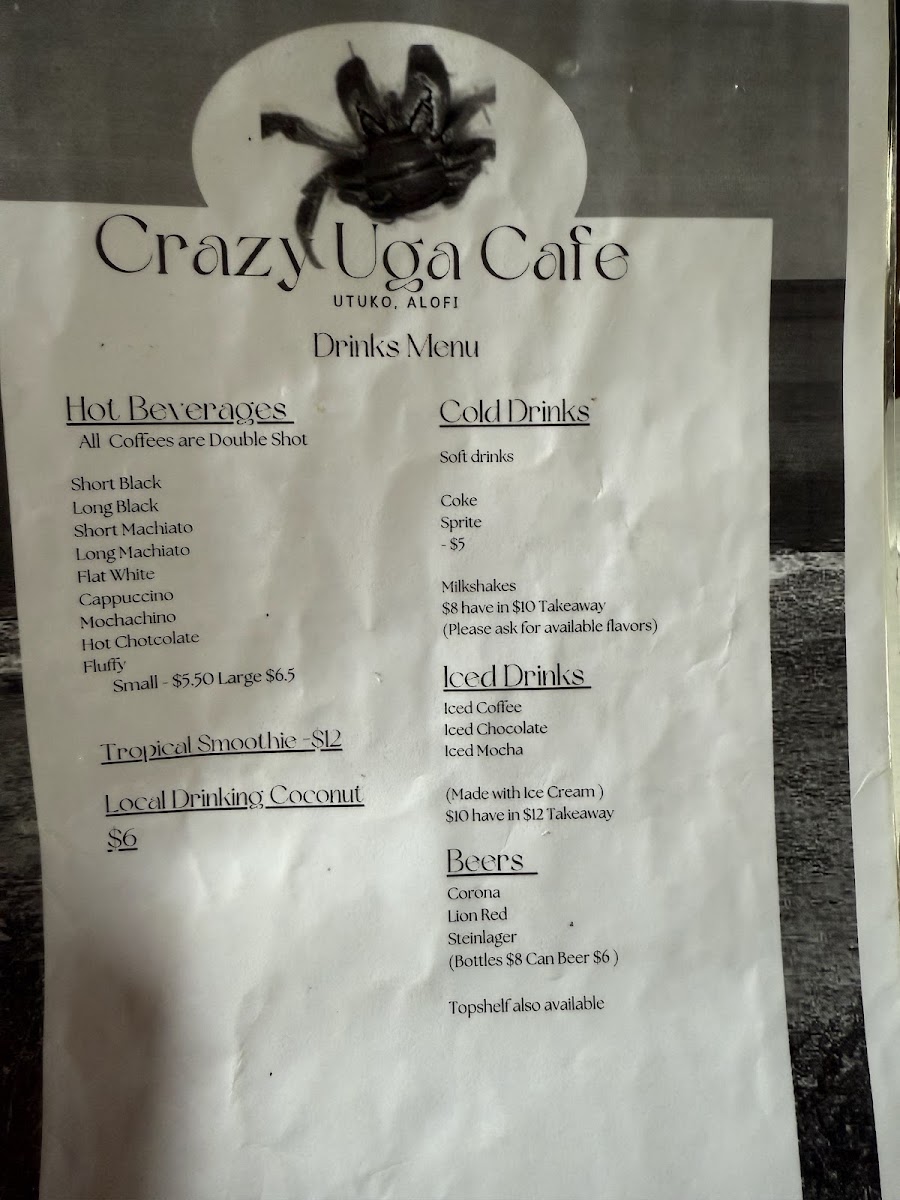 Crazy Uga Cafe
UTUKO, ALOFI
Drinks Menu
Hot Beverages
All Coffees are Double Shot
Short Black
Long Black
Short Machiato
Long Machiato
Flat White
Cappuccino
Mochachino
Hot Chotcolate
Fluffy
Small - $5.50 Large $6.5
Tropical Smoothie -$12
Local Drinking Coconut
$6
Cold Drinks
Soft drinks
Coke
Sprite
- $5
Milkshakes
$8 have in $10 Takeaway
(Please ask for available flavors)
Iced Drinks
Iced Coffee
Iced Chocolate
Iced Mocha
(Made with Ice Cream )
$10 have in $12 Takeaway
Beers
Corona
Lion Red
Steinlager
(Bottles $8 Can Beer $6 )
Topshelf also available